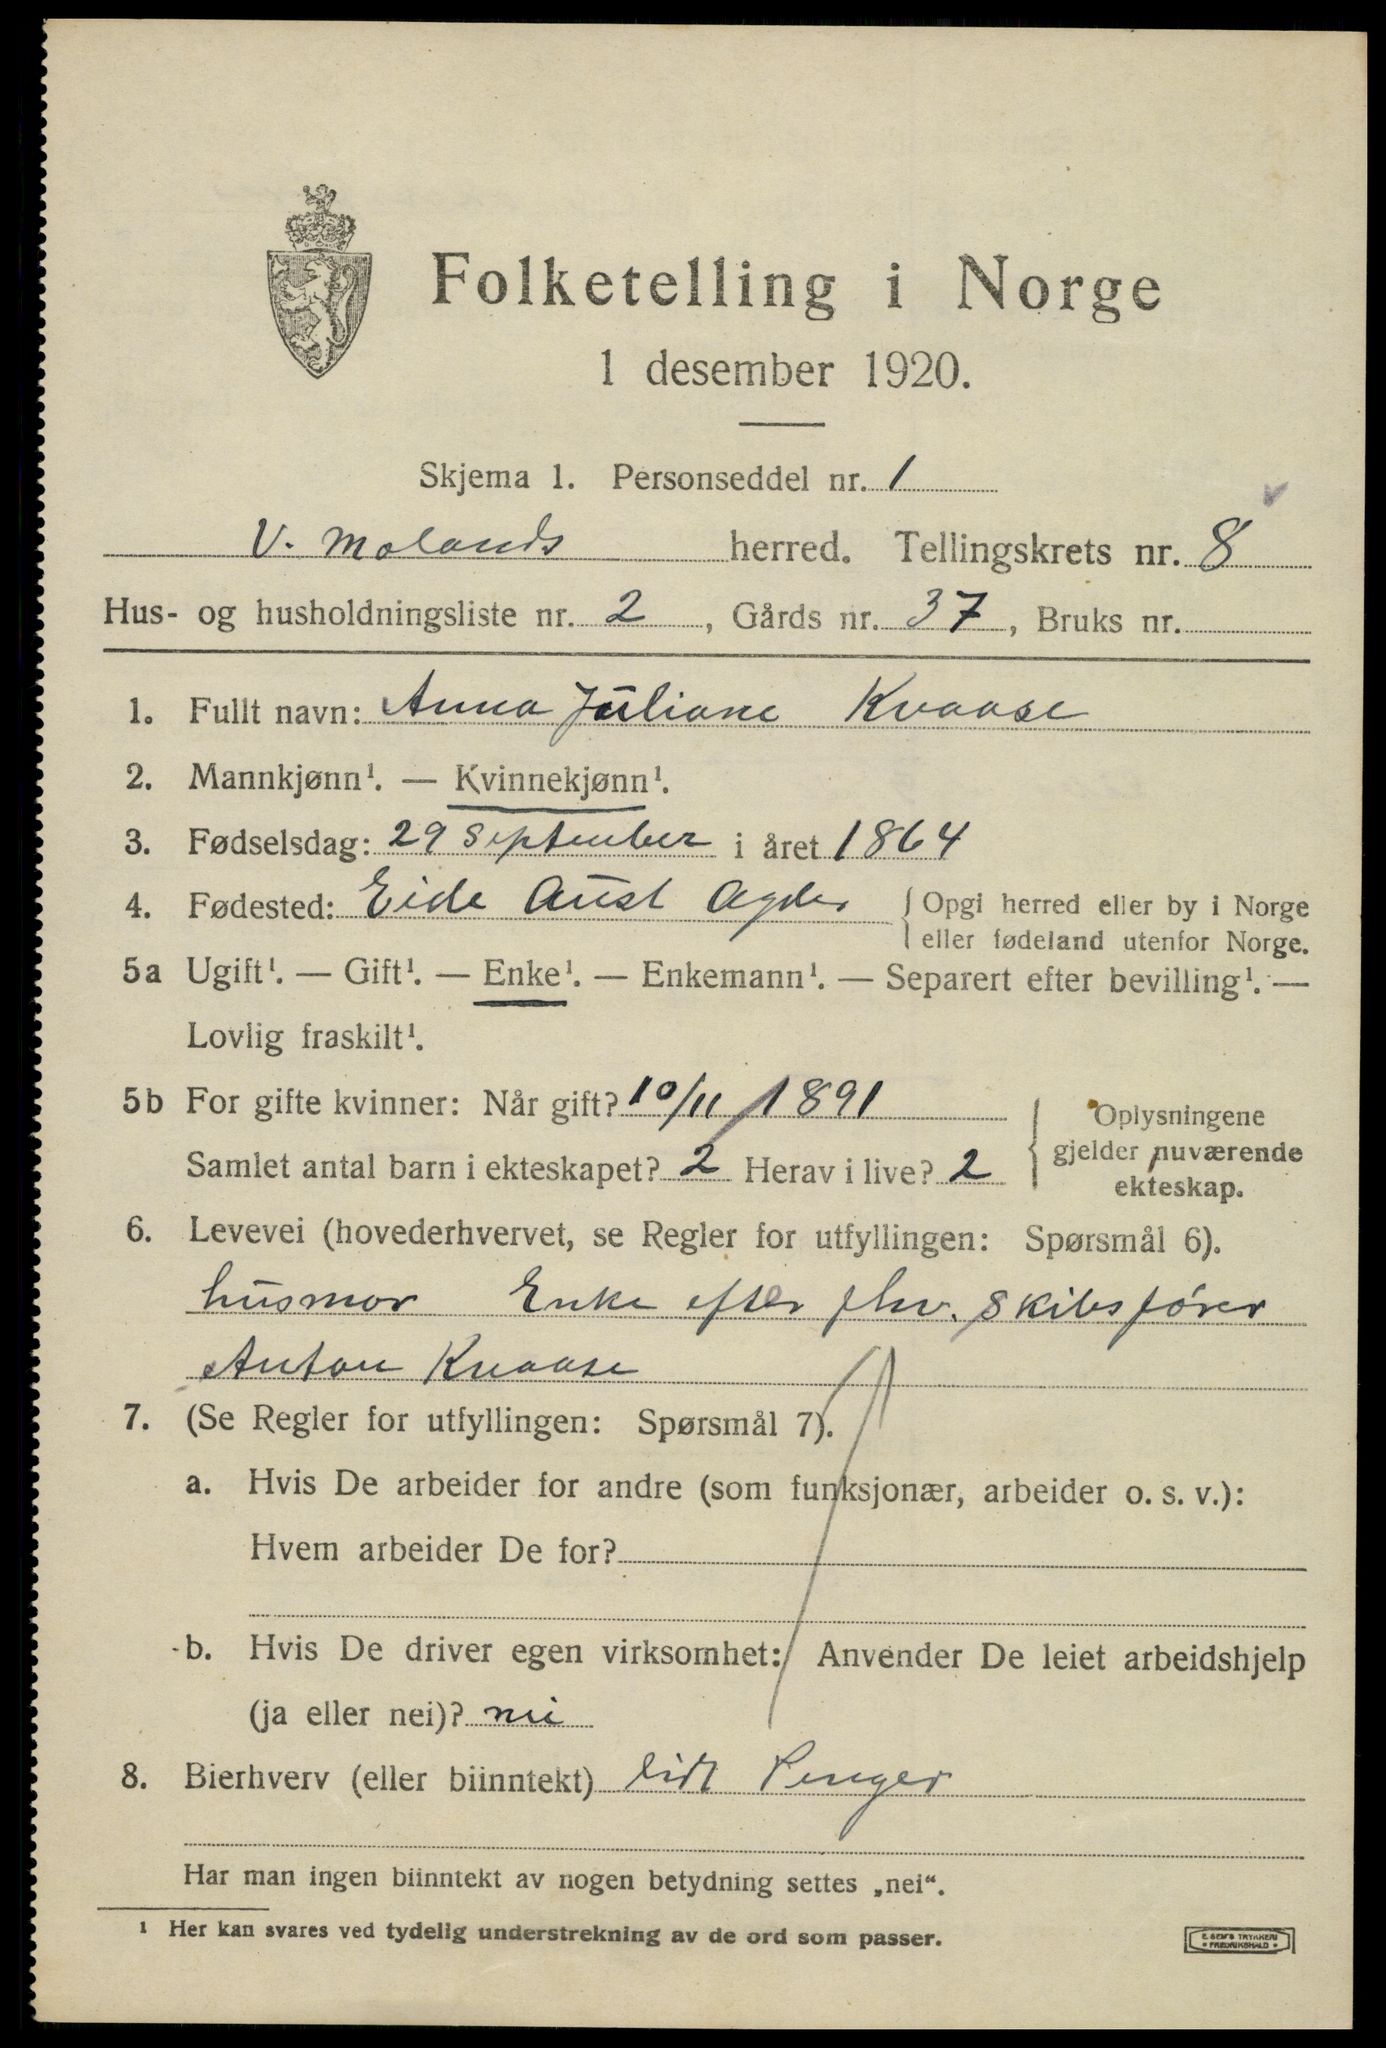 Folketelling i Norge
1 desember 1920.
Skjema 1. Personseddel nr. 1
V. Molands herred. Tellingskrets nr. 8
Hus- og husholdningsliste nr. 2, Gårds nr. 37, Bruks nr.
1. Fullt navn: Anna Juliane Kvaase
2. Mannkjønn¹. — Kvinnekjønn¹.
3. Fødselsdag: 29 September i året 1864
4. Fødested: Eide Aust Agder { Opgi herred eller by i Norge
eller fødeland utenfor Norge.
5a Ugift¹. — Gift¹. — Enke¹. — Enkemann¹. — Separert efter bevilling¹. —
Lovlig fraskilt¹.
5b For gifte kvinner: Når gift? 10/11 1891
Samlet antal barn i ekteskapet? 2 Herav i live? 2
{ Oplysningene
gjelder nuværende
ekteskap.
6. Levevei (hovederhvervet, se Regler for utfyllingen: Spørsmål 6).
husmor Enke efter fhv. Skibsfører
Anton Kvaase
7. (Se Regler for utfyllingen: Spørsmål 7).
a. Hvis De arbeider for andre (som funksjonær, arbeider o. s. v.):
Hvem arbeider De for?
b. Hvis De driver egen virksomhet: Anvender De leiet arbeidshjelp
(ja eller nei)? nei
8. Bierhverv (eller biinntekt) lidt Penger
Har man ingen biinntekt av nogen betydning settes „nei“.
¹ Her kan svares ved tydelig understrekning av de ord som passer.
E. SEM'S TRYKKERI
• FREDRIKSHALD •